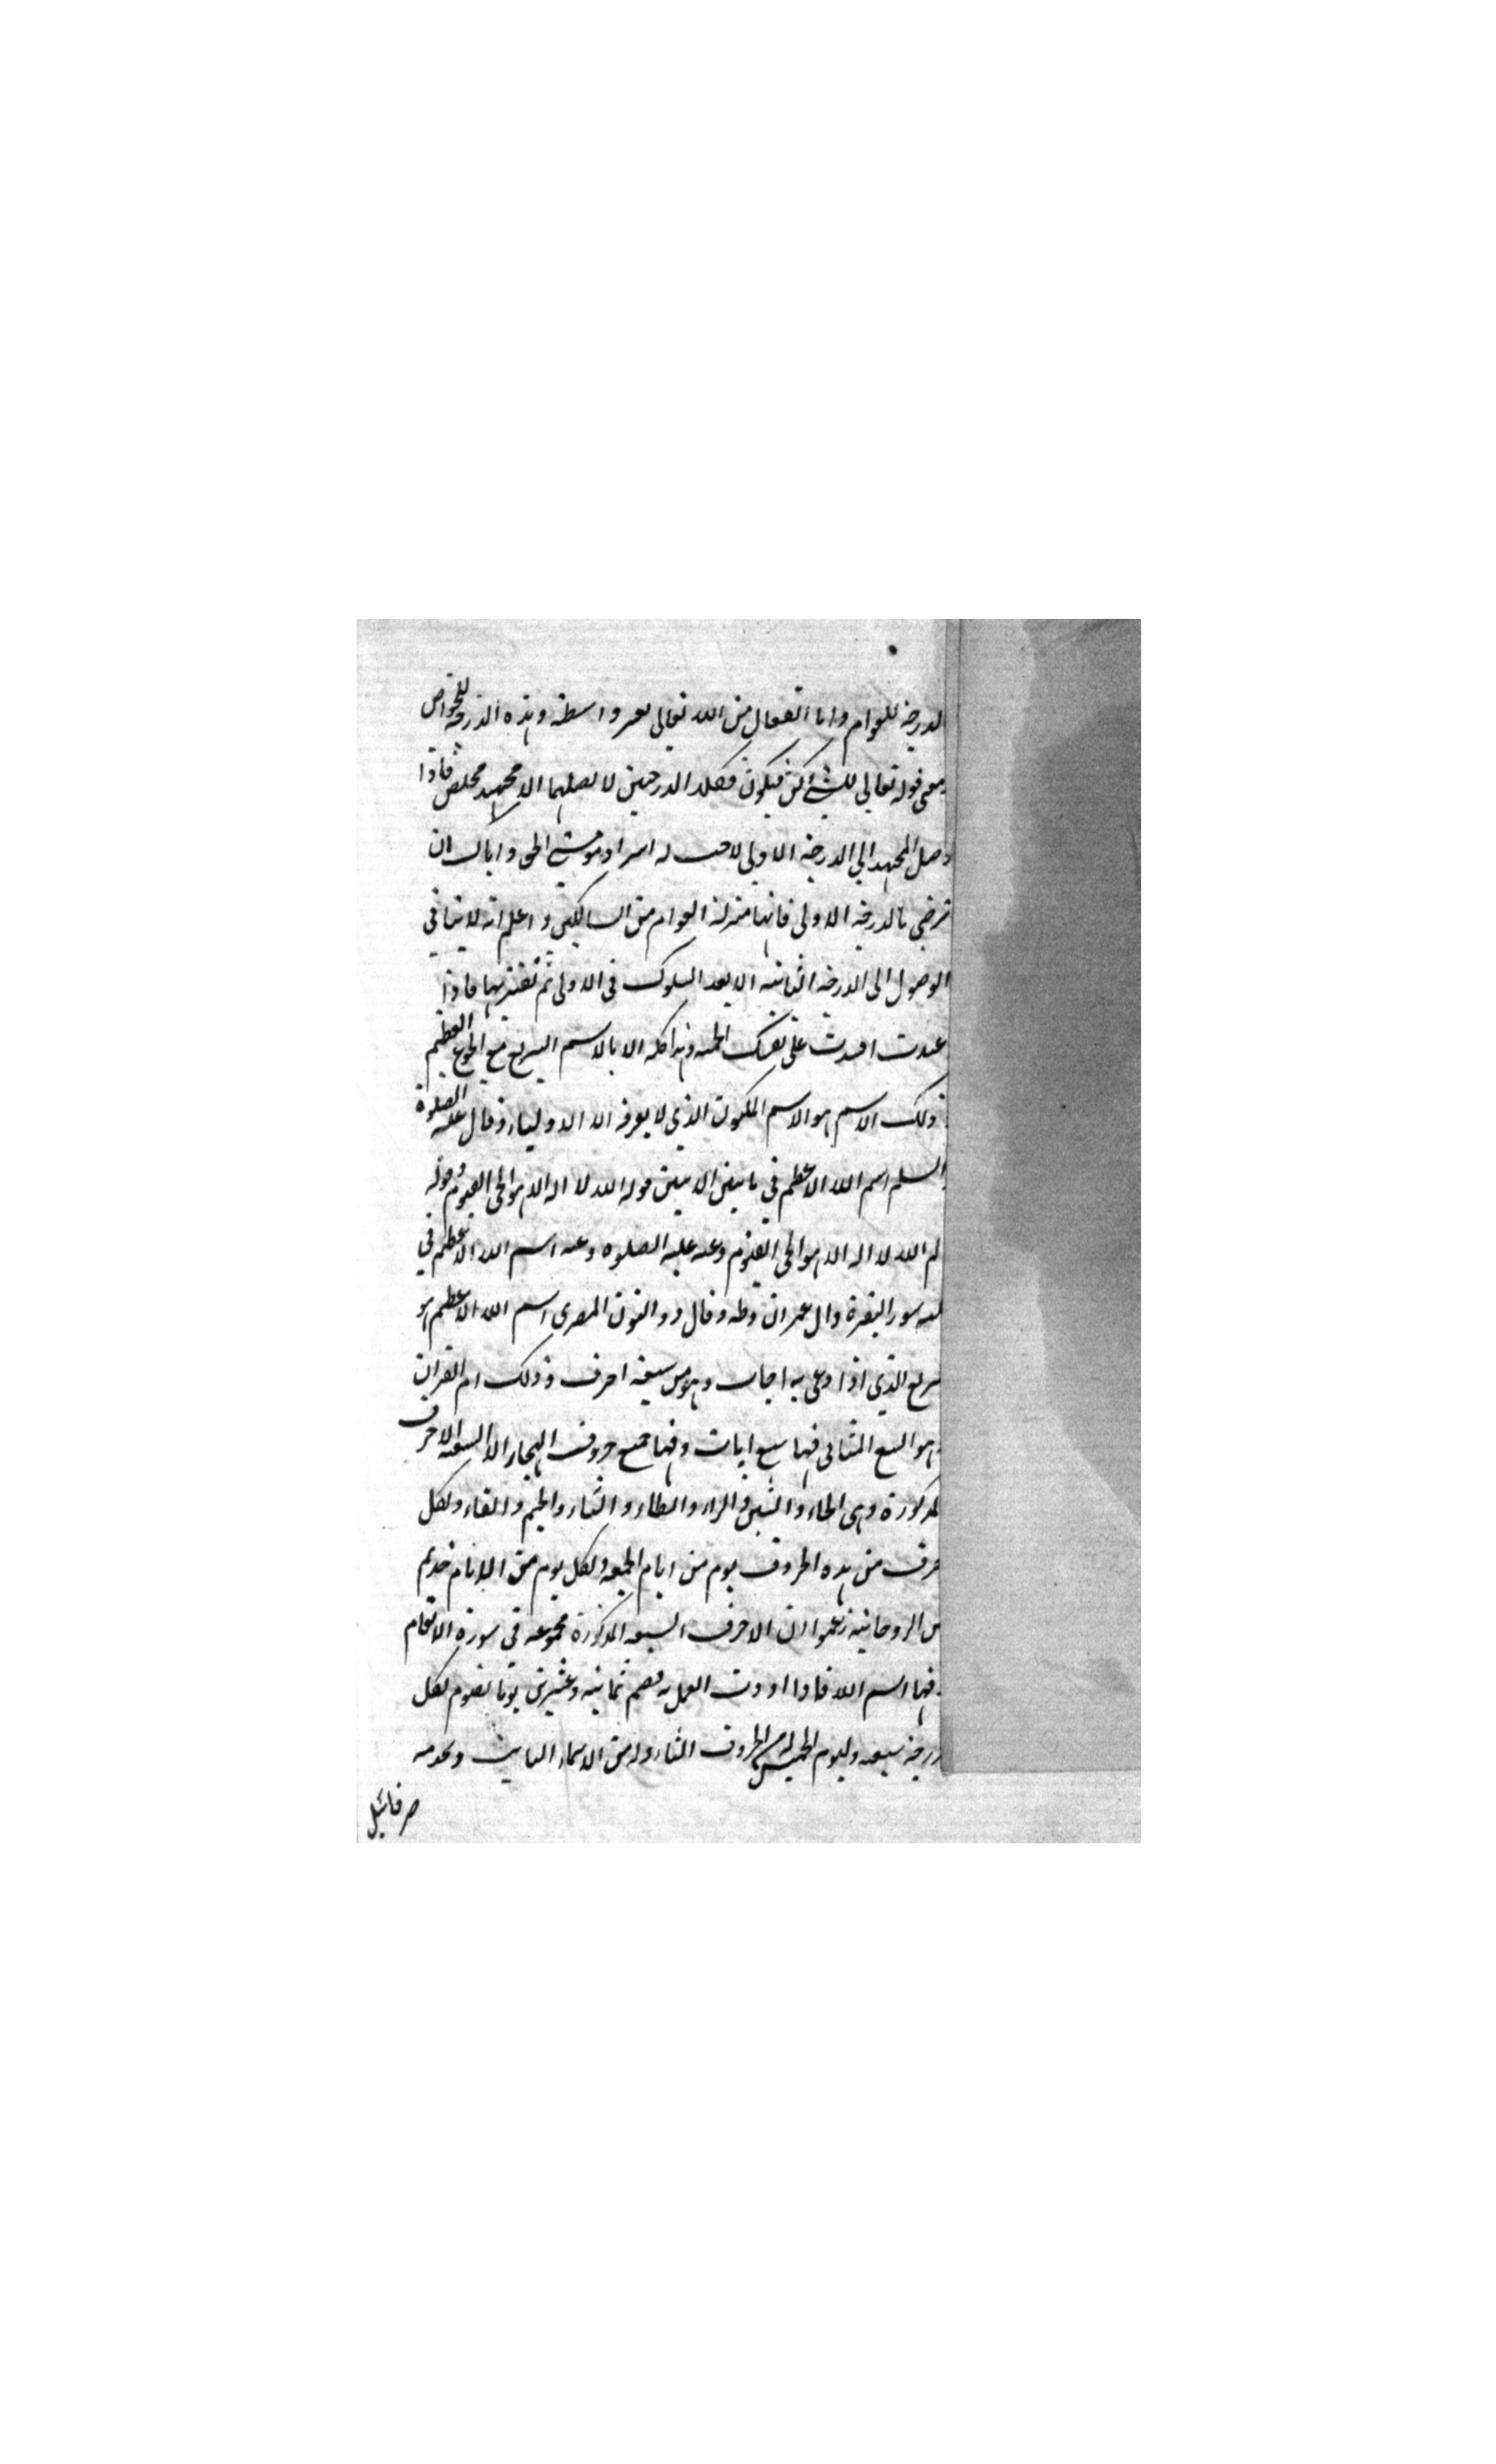 الدرجة للعوام واما انفعال من الله تعالى بغير واسطة وهذه الدرجة للخواص
ومعنى قوله تعالى للشيء كن فيكون فكلا الدرجتين لا يصلهما الا مجتهد مخلص فاذا
وصل المجتهد الى الدرجة الاولى لاحت له اسرار الحي واياك ان
ترضى بالدرجة الاولى فانها منزلة العوام من السالكين واعلم انه لا يتأتى
الوصول الى الدرجة الثانية الا بعد السلوك في الاولى ثم بها فاذا
على نفسك وهذا كله الا بالاسم السريع مع الجوع العظيم
وذلك الاسم هو الاسم المكنون الذي لا يعرفه الا الاولياء وقال عليه الصلوة
والسلم اسم الله الاعظم في ما بين الايتين قوله الله لا اله الا هو الحي القيوم وقوله
الم الله لا اله الا هو الحي القيوم وعنه عليه الصلوه وعنه اسم الله الاعظم في
ثلثه سور البقرة وال عمران وطه وقال ذو النون المصرى اسم الله الاعظم هو
سريع الذي اذا دعى به اجاب وهو من سبعة احرف وذلك ام القران
وهو السبع المثاني فيها سبع ايات وفيها جميع حروف الهجاء الا السبعه الاحرف
المذكورة وهي الخاء والشين والزاء والظاء والثاء والجيم والفاء ولكل
حرف من هذه الحروف يوم من ايام الجمعه ولكل يوم من الايام خديم
من الروحانية زعموا ان الاحرف السبعه المذكورة مجموعه في سورة الانعام
وفيها اسم الله فاذا اردت العمل به فصم ثمانية وعشرين يوما تصوم لكل
درجة سبعه وليوم الخميس له من الحروف الثاء وله من الاسماء الثابت ويخدمه
صرفائيل